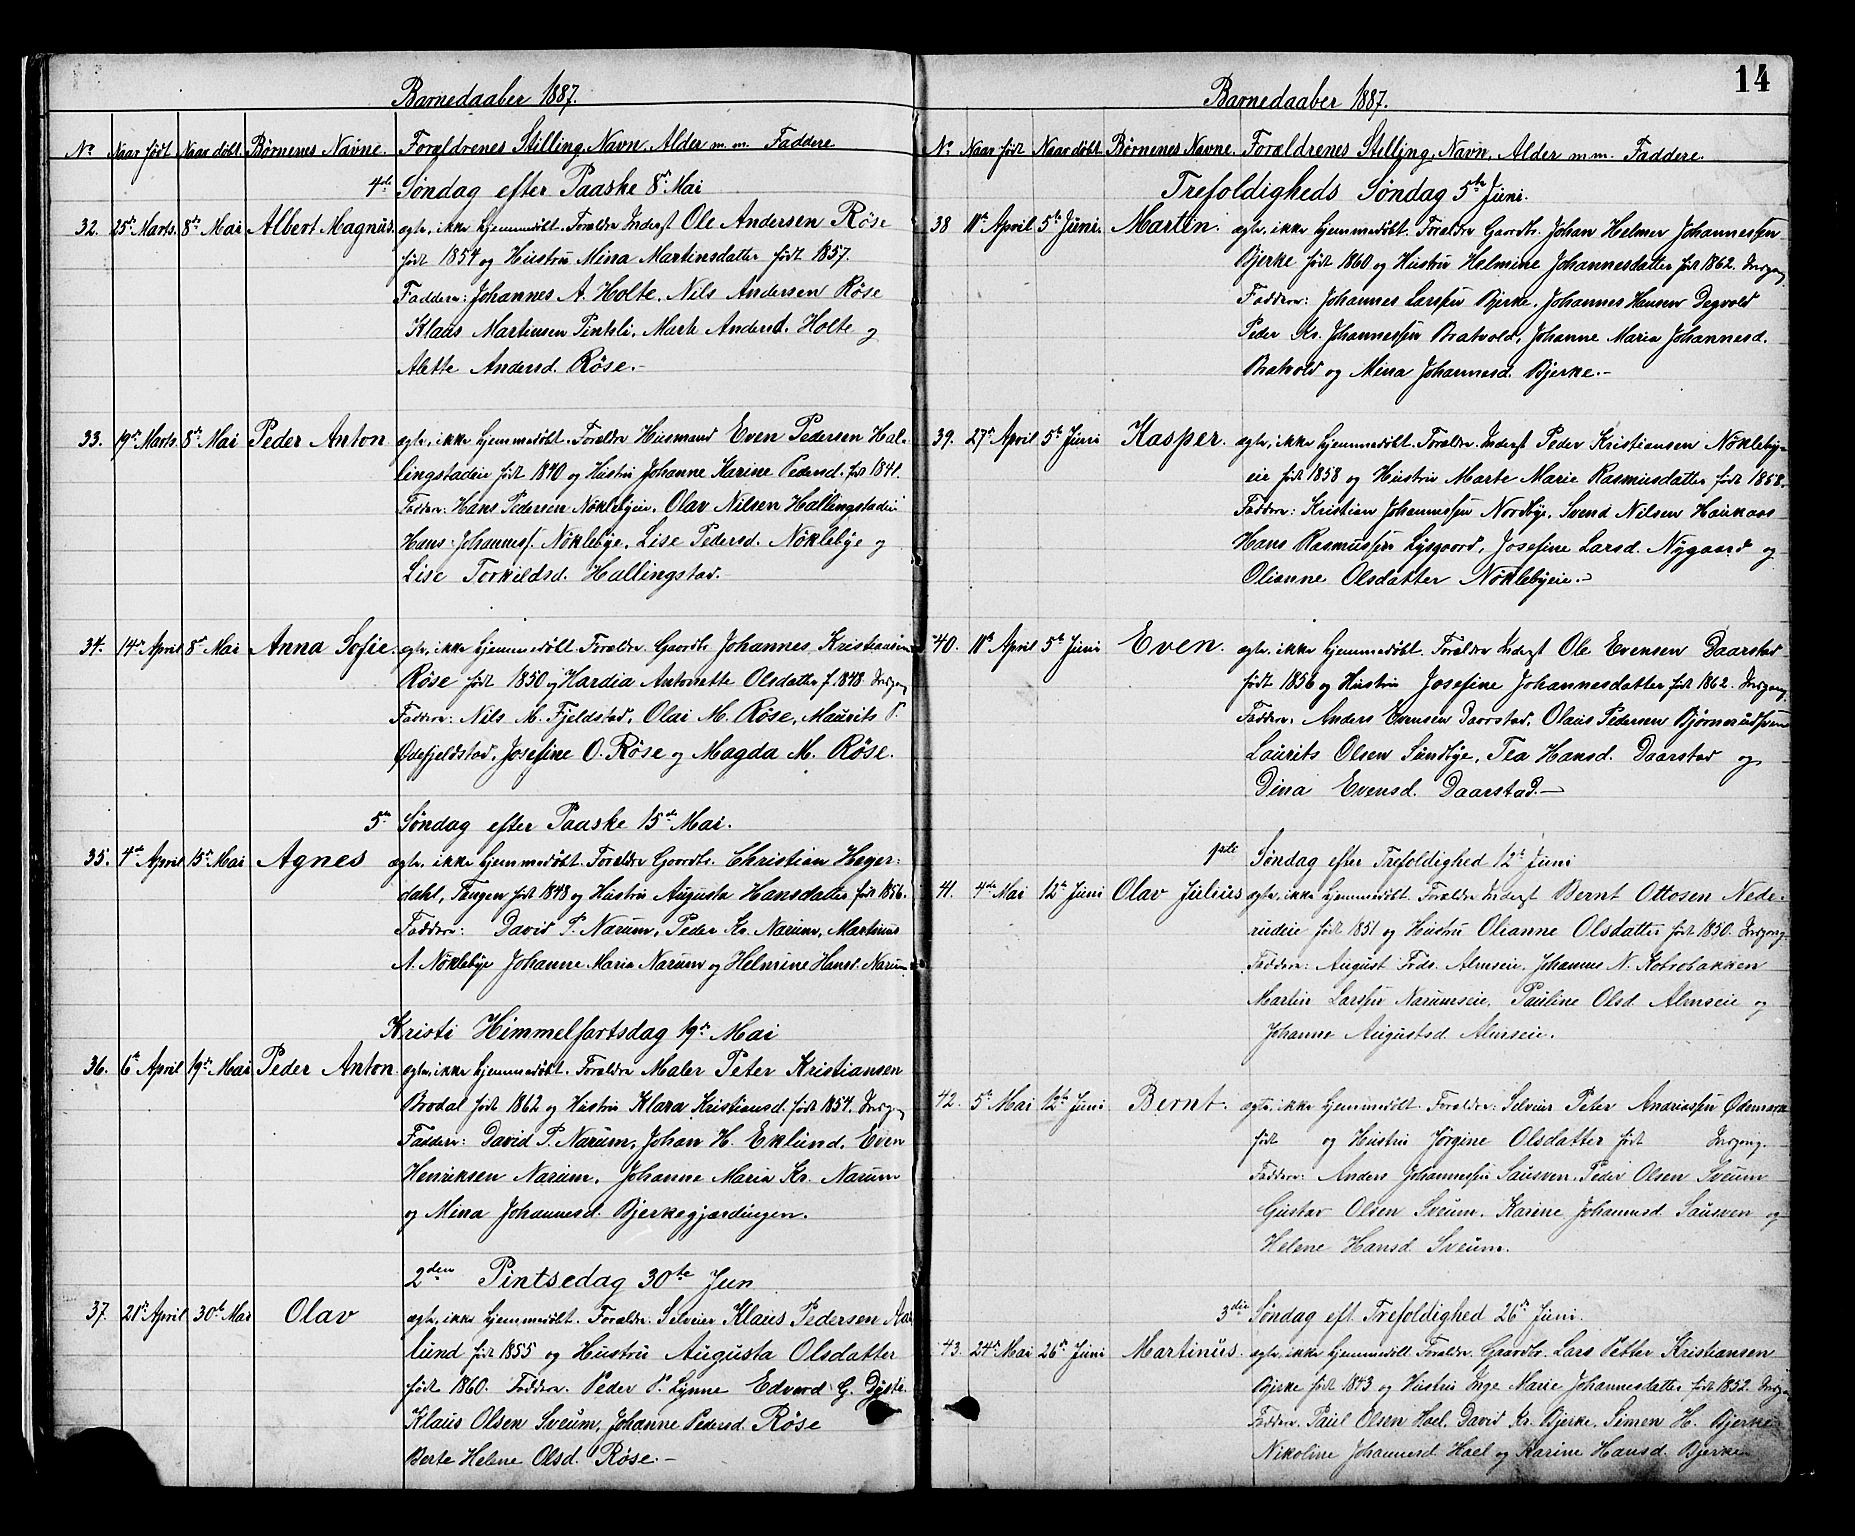 Barnedaaber 1887.
No Naar født Naar døbt. Børnenes Navne. Forældrenes Stilling, Navn, Alder m. m. Faddere
4de Søndag efter Paaske 8de Mai
32. 25de Marts. 8de Mai Albert Magnus. ægte, ikke hjemmedøbt. Forældre Inderst Ole Andersen Röse
født 1854 og Hustru Mina Martinsdatter født 1857.
Faddere: Johannes A. Holte, Nils Andersen Röse
Klaus Martinsen Pintsli, Marte Andersd. Holte og
Alette Andersd. Röse.-
33. 19de Marts. 8de Mai Peder Anton ægte, ikke hjemmedøbt. Forældre Husmand Even Pedersen Hal-
lingstadeie født 1840 og Hustru Johanne Karine Pedersd. født 1841.
Faddere: Hans Pedersen Nöklebyeie, Olav Nilsen Hallingstadeie
Hans Johannesf. Nöklebye, Lise Pedersd. Nöklebye og
Lise Torkildsd. Hallingstad.-
34. 14de April 8de Mai Anna Sofie. ægte, ikke hjemmedøbt. Forældre Gaardbr. Johannes Kristiansen
Röse født 1850 og Hardia Antonette Olsdatter f. 1848. Indgang
Faddere: Nils M. Fjeldstad, Olai M. Röse, Maurits P.
Ödefjeldstad, Josefine O. Röse og Magda M. Röse.
5te Søndag efter Paaske 15de Mai.
35. 4de April 15de Mai Agnes ægte, ikke hjemmedøbt. Forældre Gaardbr. Christian Heyer-
dahl, Tangen født 1848 og Hustru Augusta Hansdatter født 1856.
Faddere: David P. Narum, Peder Kr. Narum, Martinus
A. Nöklebye Johanne Maria Narum og Helmine Hansd. Narum
Kristi Himmelfartsdag 19de Mai
36. 6te April 19de Mai Peder Anton. ægte, ikke hjemmedøbt. Forældre Maler Peter Kristiansen
Brodal født 1862 og Hustru Klara Kristiansd. født 1854. Indgang
Faddere: David P. Narum, Johan H. Eklund, Even
Henriksen Narum, Johanne Maria Kr. Narum
og Mina Johannesd. Bjerkegjærdingen.
2den Pintsedag 30te Jun
37. 21de April 30te Mai Olav ægte, ikke hjemmedøbt. Forældre: Selveier Klaus Pedersen Aas
lund født 1855 og Hustru Augusta Olsdatter
født 1860. Faddere. Peder P. Lynne Edvard G. Dyste
Klaus Olsen Sveum, Johanne Pedersd. Röse
Berte Helene Olsd. Röse.-
14
Barnedaaber 1887.
No Naar født Naar døbt Børnenes Navne. Forældrenes Stilling, Navn, Alder m m. Faddere.
Trefoldigheds Søndag 5te Juni.
38 11te April 5te Juni. Martin. ægte, ikke hjemmedøbt. Forældre Gaardbr. Johan Helmer Johannessen
Bjerke født 1860 og Hustru Helmine Johannesdatter født 1862. Indgang
Faddere: Johannes Larssen Bjerke, Johannes Hansen Degvold
Peder Kr. Johannessen Bratvold, Johanne Maria Johannesd.
Bratvold og Mina Johannesd. Bjerke.-
39. 27de April 5te Juni Kasper. ægte, ikke hjemmedøbt. Forældre. Inderst Peder Kristiansen Nökleby-
eie født 1858 og Hustru Marte Marie Rasmusdatter født 1858.
Faddere: Kristian Johannessen Nordbye, Svend Nilsen Haukaas
Hans Rasmussen Lysgaard, Josefine Larsd. Nygaard og
Olianne Olsdatter Nöklebyeie.-
40. 11te April 5te Juni Even. ægte, ikke hjemmedøbt. Forældre Inderst Ole Evensen Daarstad
født 1856 og Hustru Josefine Johannesdatter født 1862. Indgang
Faddere, Anders Evensen Daarstad, Olaus Pedersen Björnerudsveen
Laurits Olsen Sundbye, Tea Hansd. Daarstad og
Dina Evensd. Daarstad.-
1ste Søndag efter Trefoldighed 12te Juni
41. 4de Mai 12te Juni Olav Julius ægte, ikke hjemmedøbt. Forældre Inderst Bernt Ottosen Nede-
rudeie født 1851 og Hustru Olianne Olsdatter født 1850. Indgang
Faddere: August Frdr. Almseie, Johannes N. Kobrobakken
Martin Larssen Narumseie, Pauline Olsd Almseie og
Johanne Augustsd Almseie.
42. 5te Mai 12te Juni Bernt. ægte, ikke hjemmedøbt. Forældre: Selveier Peter Andreassen Ödemark
født og Hustru Jörgine Olsdatter født Indgang.
Faddere: Anders Johannessen Sausven, Peder Olsen Sveum
Gustav Olsen Sveum, Karine Johannesd Sausven og
Helene Hansd Sveum.
3die Søndag eft. Trefoldighed 26de Juni.
43. 24de Mai 26de Juni Martinus. ægte, ikke hjemmedøbt. Forældre. Gaardbr. Lars Petter Kristiansen
Bjerke født 1843 og Hustru Inge Marie Johannesdatter født 1852. Indgang
Faddere, Paul Olsen Hoel, David Kr. Bjerke, Simen H. Bjerke
Nikoline Johannesd Hoel og Karine Hansd. Bjerke